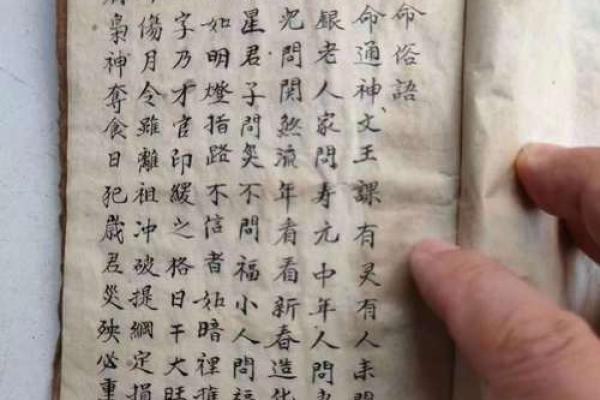 命俗語
命通神文王課有灵有人来問
銀老人家問寿元中年人問
児問関煞流年看看新春造化
星君子問災不問福小人問福
如明燈指路不信者如暗裡
字乃才官印綬之格日干大旺
傷月令雖離祖冲破提綱定損
梟神奪食日犯歲君災殃必重